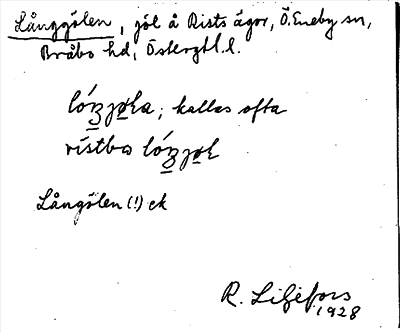 Långgölen, göl å Rists ägor, Ö. Eneby sn,
Bråbo hd, Östergtl. l.
lóʒjøla; kallas ofta
rístbo lóʒjøl
Långölen (!) ek
R. Liljefors
1928